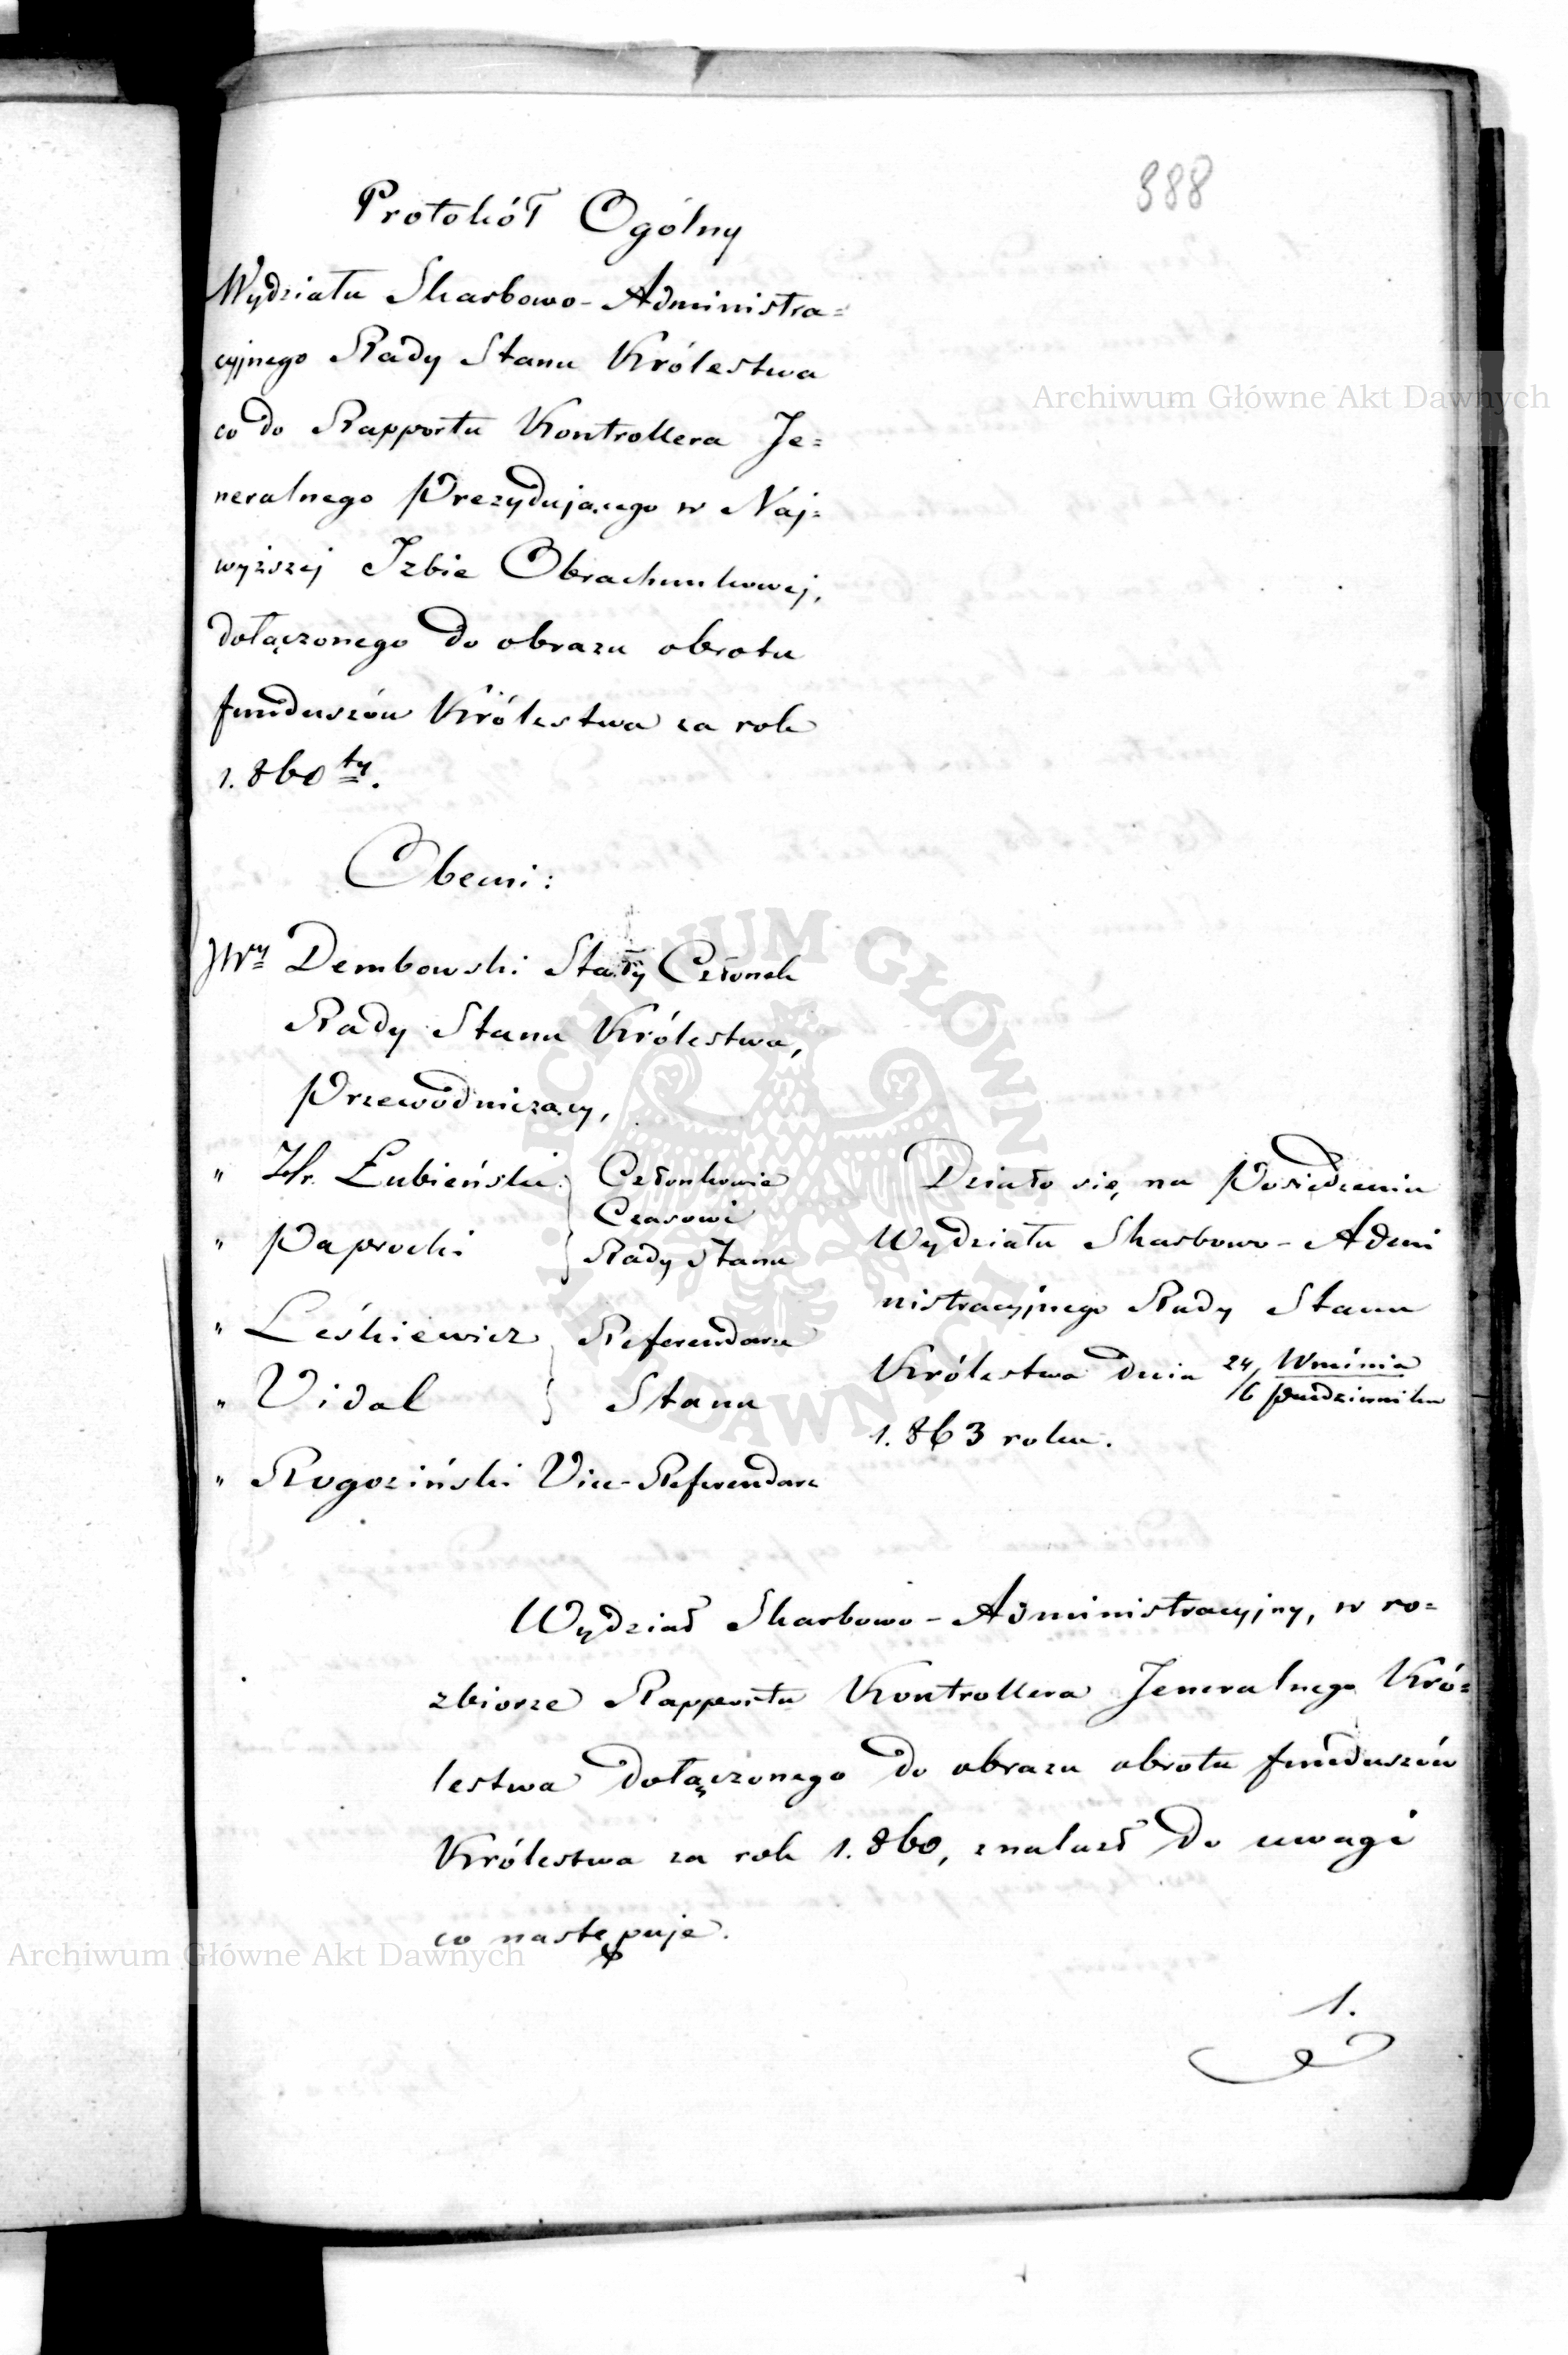 888
Protokół Ogólny
Wydziału Skarbowo-Administra=
cyjnego Rady Stanu Królestwa
co do Rapportu Kontrollera Je=
neralnego Prezydującego w Naj=
wyższej Izbie Obrachunkowej,
dołączonego do obrazu obrotu
funduszów Królestwa za rok
1.860ty.
Obecni:
JWny Dembowski Stały Członek
Rady Stanu Królestwa,
Przewodniczący,
" Hr. Łubieński } Członkowie
Czasowi
" Paprocki } Rady Stanu
" Leśkiewicz } Referendarze
" Vidal } Stanu
" Rogoziński Vice-Referendarz
Działo się na Posiedzeniu
Wydziału Skarbowo-Admi
nistracyjnego Rady Stanu
Królestwa dnia 24/6 Września/Października
1.863 roku.
Wydział Skarbowo-Administracyjny, w ro=
zbiorze Rapportu Kontrollera Jeneralnego Kró=
lestwa dołączonego do obrazu obrotu funduszów
Królestwa za rok 1.860, znalazł do uwagi
co następuje.
1.
Archiwum Główne Akt Dawnych
ARCHIWUM GŁÓWNE AKT DAWNYCH
Archiwum Główne Akt Dawnych